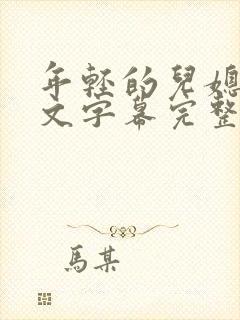 年輕的兒媳
文字幕完整
馬某